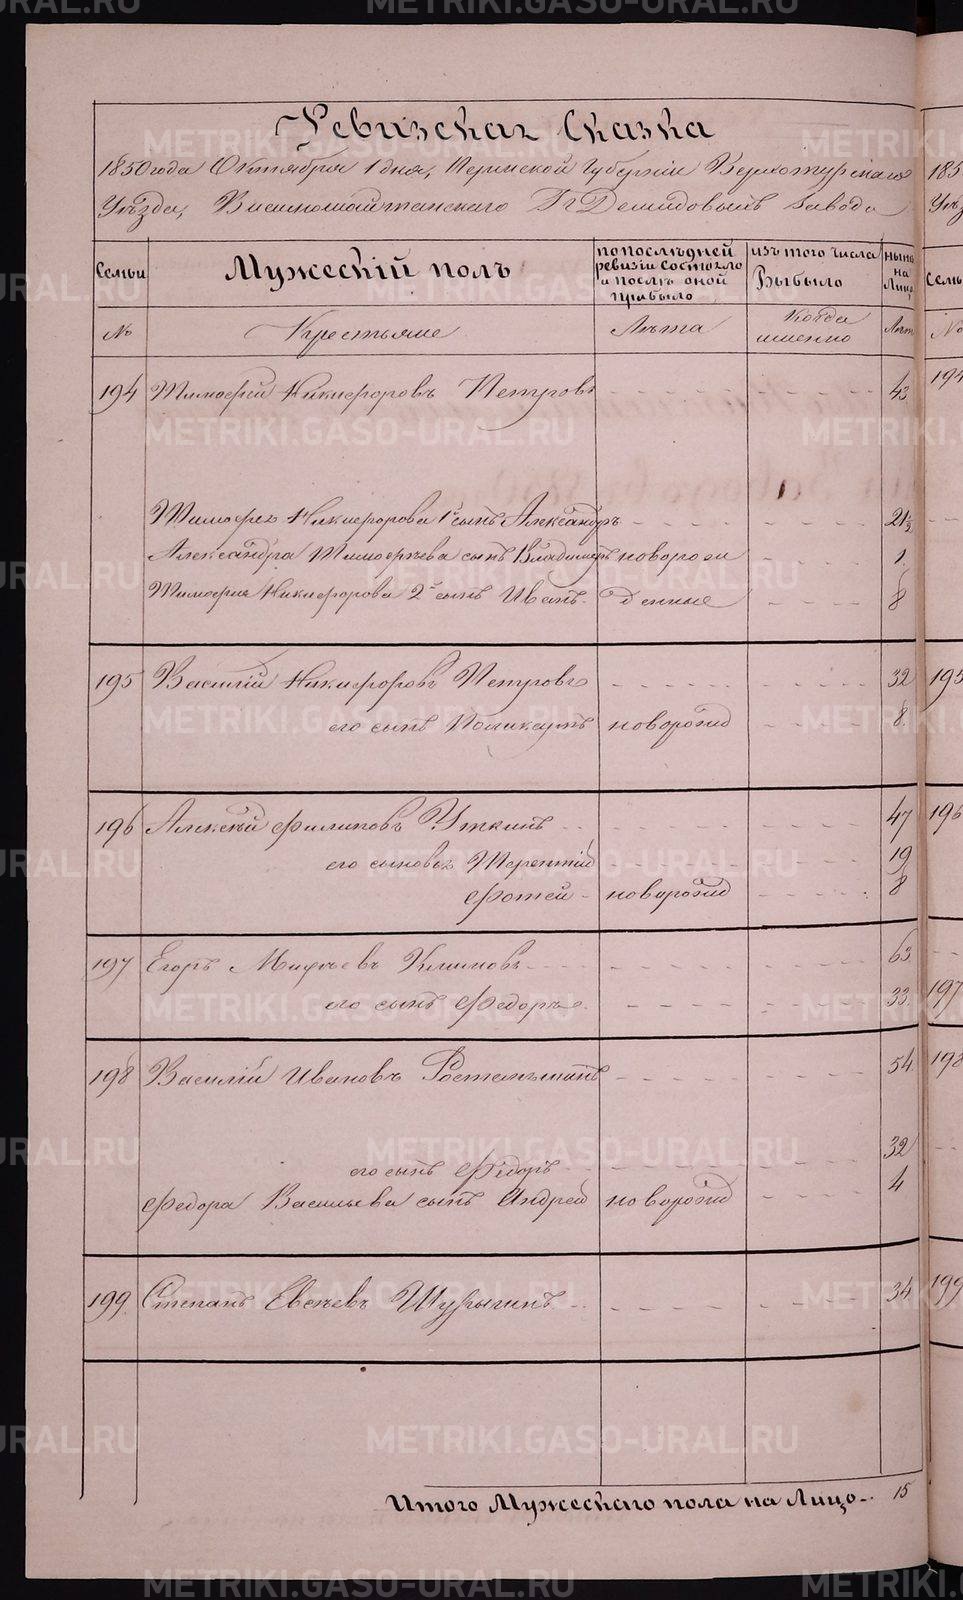 Ревизская Сказка
1850 года Октября 1 дня, Пермской Губернiи Верхотурскаго
Уѣзда, Висимошайтанскаго Гг Демидовыхъ завода
Семьи Мужескiй полъ по послѣдней ревизiи состояло и послѣ оной прибыло изъ того числа Выбыло нынѣ на Лицо
№ Крестьяне Лѣта Когда именно Лѣт
194 Тимофей Никифоровъ Петровъ 43
Тимофея Никифорова 1й сынъ Александръ 21½
Александра Тимофѣева сынъ Владимiръ новорож 1
Тимофея Никифорова 2й сынъ Иванъ денные 8
195 Василiй Никифоровъ Петровъ 32
его сынъ Поликарпъ новорожд 8
196 Алексѣй Филиповъ Уткинъ 47
его сыновья Терентiй 19
Фотей новорожд 8
197 Егоръ Михѣевъ Климовъ 63
его сынъ Федоръ 33
198 Василiй Ивановъ 54
его сынъ Федоръ 32
Федора Васильева сынъ Андрей новорожд 4
199 Степанъ Евсѣевъ Шурыгинъ 34
Итого Мужескаго пола на Лицо 15
METRIKI.GASO-URAL.RU